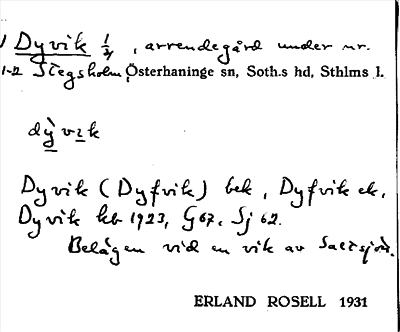 Dyvik 1/4, arrendegård under nr.
1-2 Stegsholm, Österhaninge sn, Soth.s hd, Sthlms l.
dỳvik
Dyvik (Dyfvik) bek, Dyfvik ek,
Dyvik kb 1923, G 67, Sj 62.
Belägen vid en vik av Saltsjön.
ERLAND ROSELL 1931